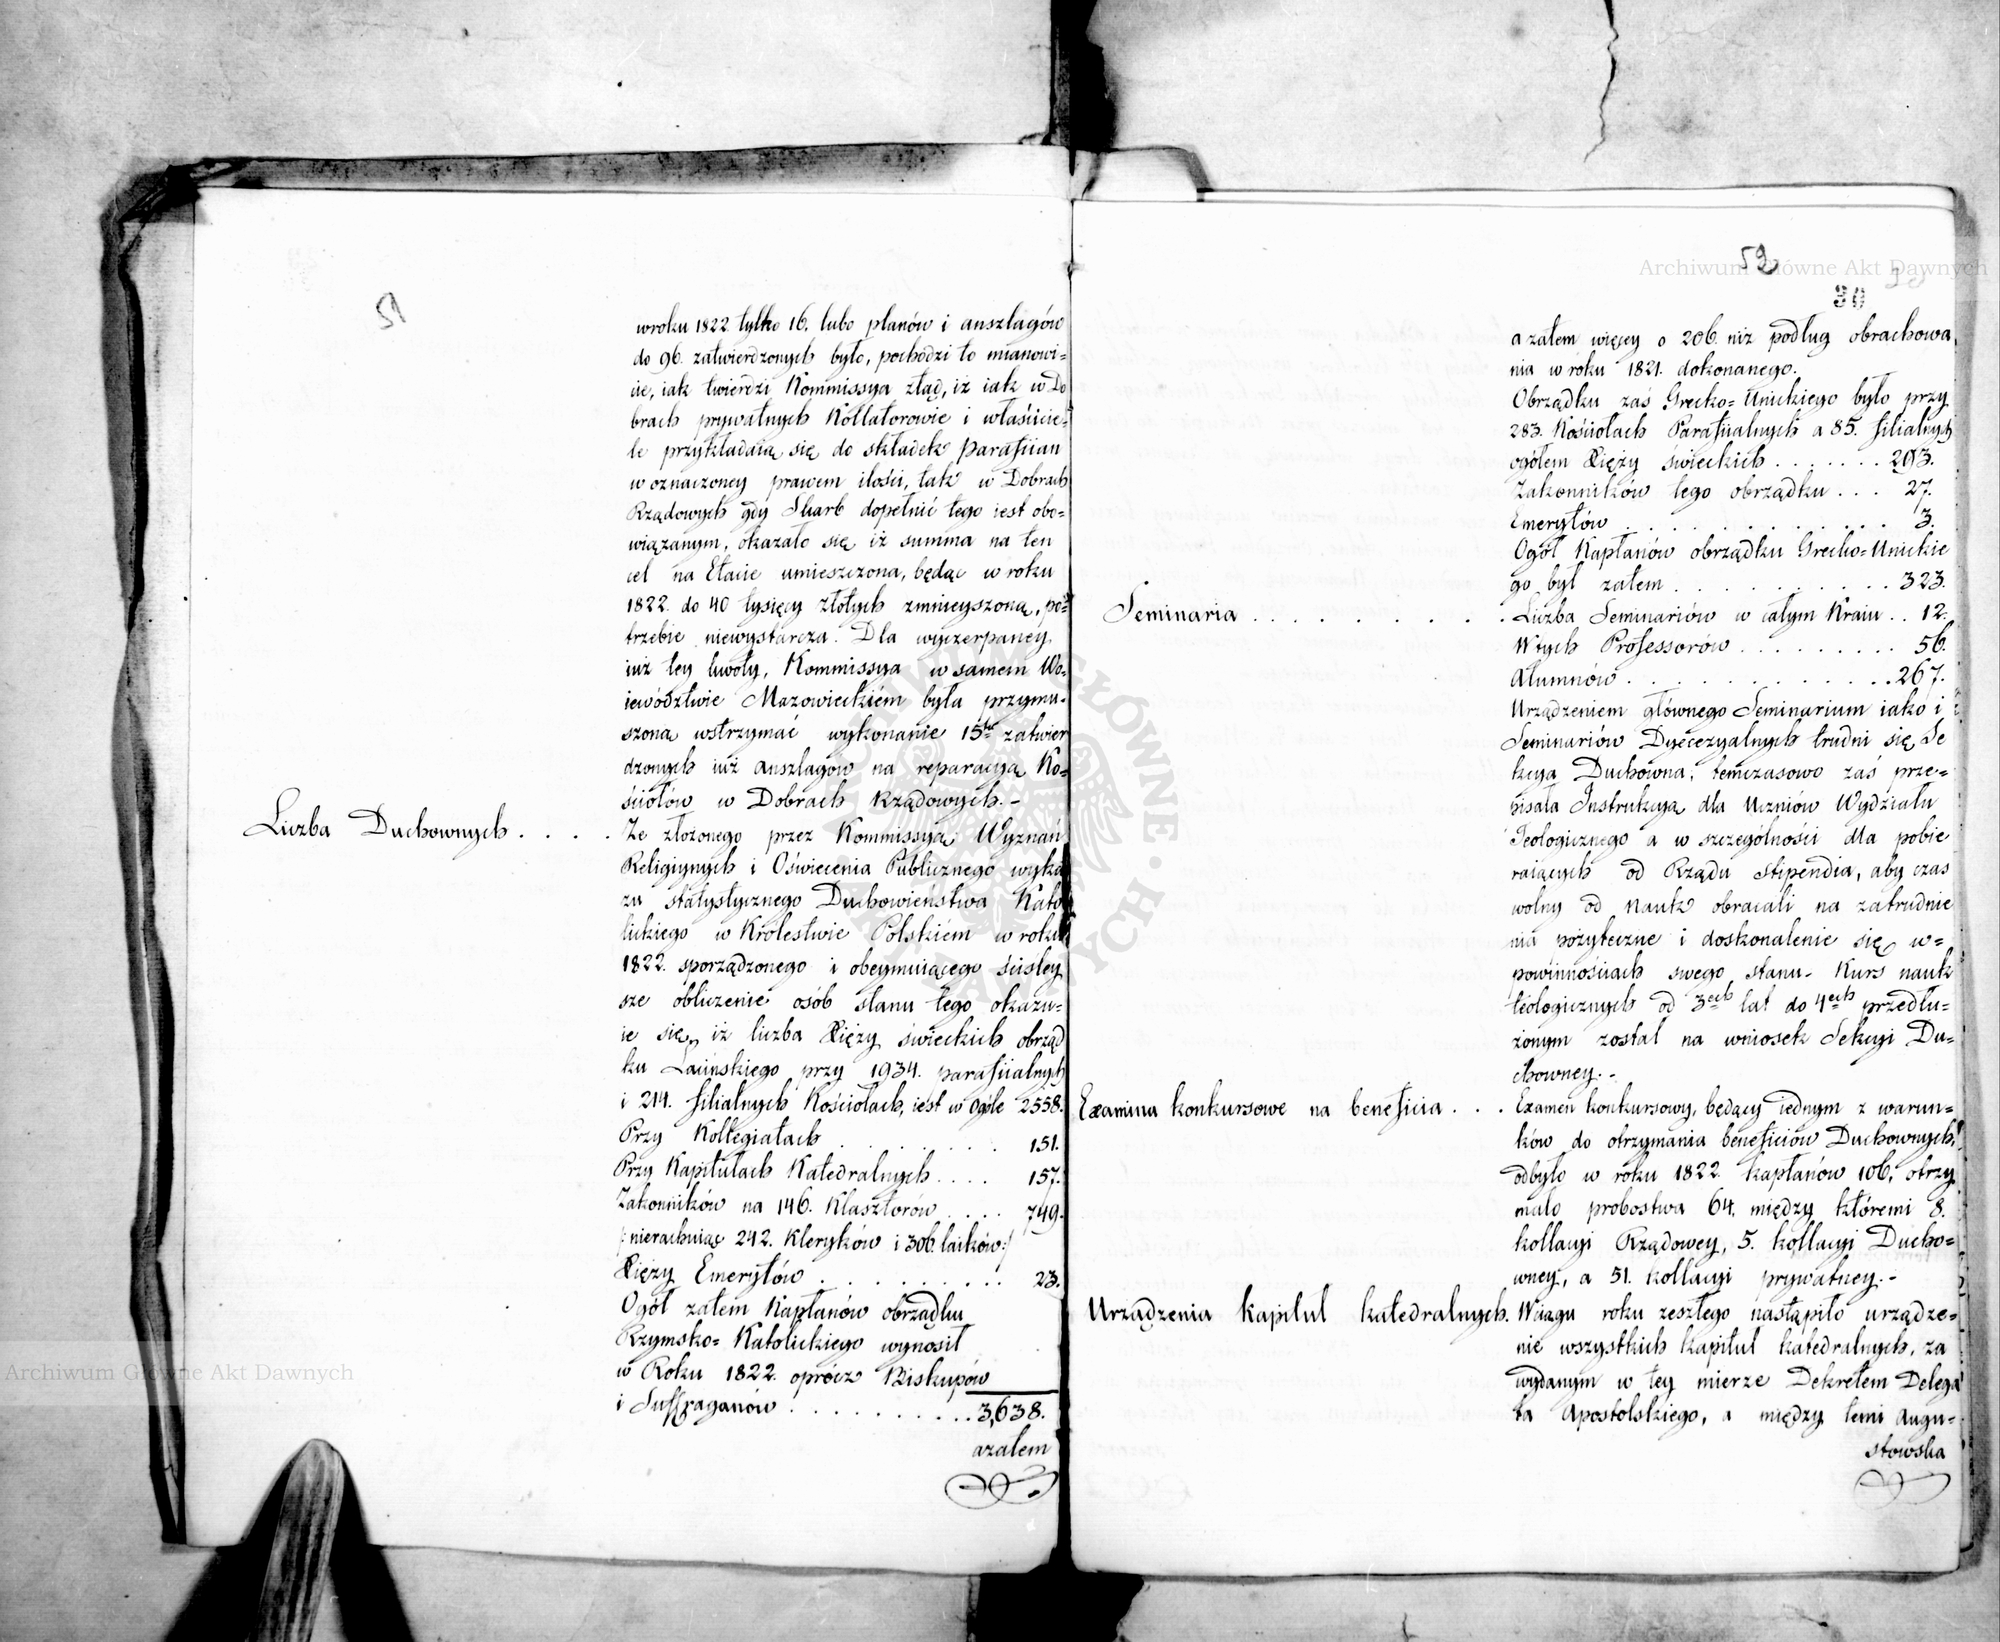 51
w roku 1822 tylko 16. lubo planów i anszlagów
do 96. zatwierdzonych było, pochodzi to mianowi=
cie, iak twierdzi Kommissya ztąd, iż iak w Do
brach prywatnych Kollatorowie i właścicie=
le przykładaią się do składek Parafiian
w oznaczoney prawem ilości, tak w Dobrach
Rządowych gdy Skarb dopełnić tego iest obo=
wiązanym, okazało się iż summa na ten
cel na Etacie umieszczona, będąc w roku
1822. do 40 tysięcy złotych zmnieyszoną, po=
trzebie niewystarcza. Dla wyczerpaney
iuż tey kwoty, Kommissya w samem Wo=
iewództwie Mazowieckiem była przymu=
szona wstrzymać wykonanie 15tu zatwier
dzonych iuż anszlagów na reparacyą Ko=
ściołów w Dobrach Rządowych.-
Liczba Duchownych . . . .
Ze złożonego przez Kommissyą Wyznań
Religiynych i Oświecenia Publicznego wyka
zu statystycznego Duchowieństwa Kato
lickiego w Królestwie Polskiém w roku
1822. sporządzonego i obeymuiącego ściśley
sze obliczenie osób stanu tego okazu=
ie się, iż liczba Xięży świeckich obrząd
ku Łacińskiego przy 1934. parafiialnych
i 214. filialnych Kościołach, iest w Ogóle 2558.
Przy Kollegiatach . . . . . . 151.
Przy Kapitułach Katedralnych . . . . 157.
Zakonników na 146. Klasztorów . . . . 749.
/: nierachuiąc 242. Kleryków i 306. laików:/
Xięży Emerytów . . . . . . . . . 23.
Ogół zatem Kapłanów obrządku
Rzymsko= Katolickiego wynosił
w Roku 1822. oprócz Biskupów
i Suffraganów . . . . . . . . . . 3,638.
a zatem
52
30
a zatem więcey o 206. niż podług obrachowa
nia w roku 1821. dokonanego.
Obrządku zaś Grecko= Unickiego było przy
283. Kościołach Parafiialnych a 85. filialnych
ogółem Xięży świeckich . . . . . . . 293.
Zakonników tego obrządku . . . 27.
Emerytów . . . . . . . . . . . . . 3.
Ogół Kapłanów obrządku Grecko= Unickie
go był zatem . . . . . . . . . . . 323.
Seminaria . . . . . . . . .
Liczba Seminariów w całym Kraiu . . 12.
W tych Professorów . . . . . . . . . 56.
Alumnów . . . . . . . . . . . . . 267.
Urządzeniem głównego Seminarium iako i
Seminariów Dyecezyalnych trudni się Se
kcya Duchowna, temczasowo zaś prze=
pisała Instrukcyą dla Uczniów Wydziału
Teologicznego a w szczególności dla pobie
raiących od Rządu Stipendia, aby czas
wolny od Nauk obracali na zatrudnie
nia pożyteczne i doskonalenie się w=
powinnościach swego stanu. Kurs nauk
teologicznych od 3ech lat do 4ech przedłu=
żonym został na wniosek Sekcyi Du=
chowney.-
Examina konkursowe na beneficia . . .
Examen konkursowy, będący iednym z warun=
ków do otrzymania beneficiów Duchownych,
odbyło w roku 1822. kapłanów 106, otrzy
mało probostwa 64. między któremi 8.
kollacyi Rządowey, 5. kollacyi Ducho=
wney, a 51. kollacyi prywatney.-
Urządzenia kapituł katedralnych.
W ciągu roku zeszłego nastąpiło urządze=
nie wszystkich kapituł katedralnych, za
wydanym w tey mierze Dekretem Delega
ta Apostolskiego, a między temi Augu=
stowska
Archiwum Główne Akt Dawnych
Archiwum Główne Akt Dawnych
ARCHIWUM GŁÓWNE AKT DAWNYCH